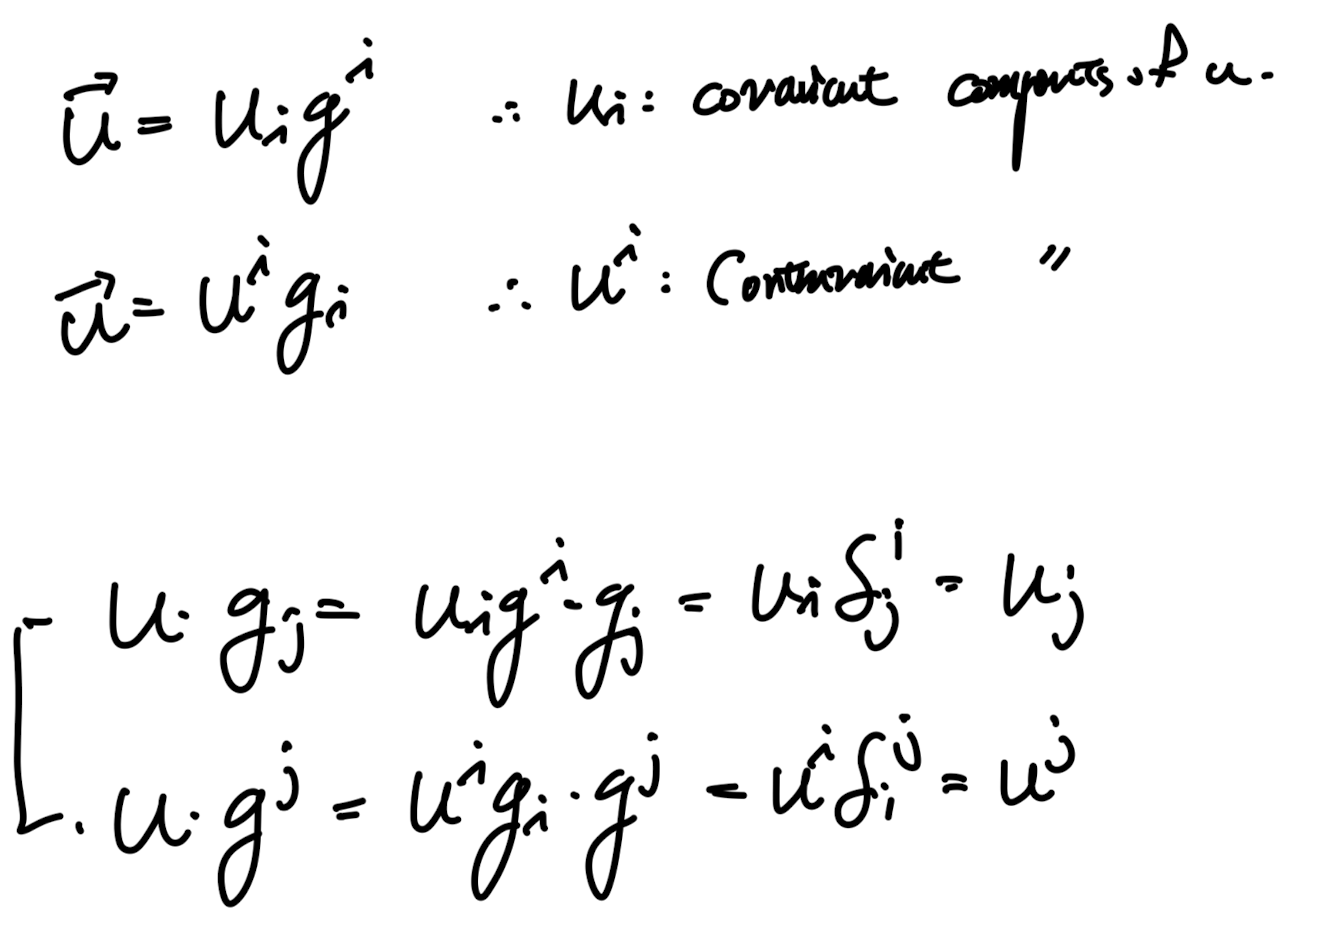 u⃗ = uᵢgⁱ ∴ uᵢ : covariant components of u.
u⃗ = uⁱgᵢ ∴ uⁱ : Contravariant 〃
u · gⱼ = uᵢgⁱ · gⱼ = uᵢδⱼⁱ = uⱼ
u · gʲ = uⁱgᵢ · gʲ = uⁱδᵢʲ = uʲ